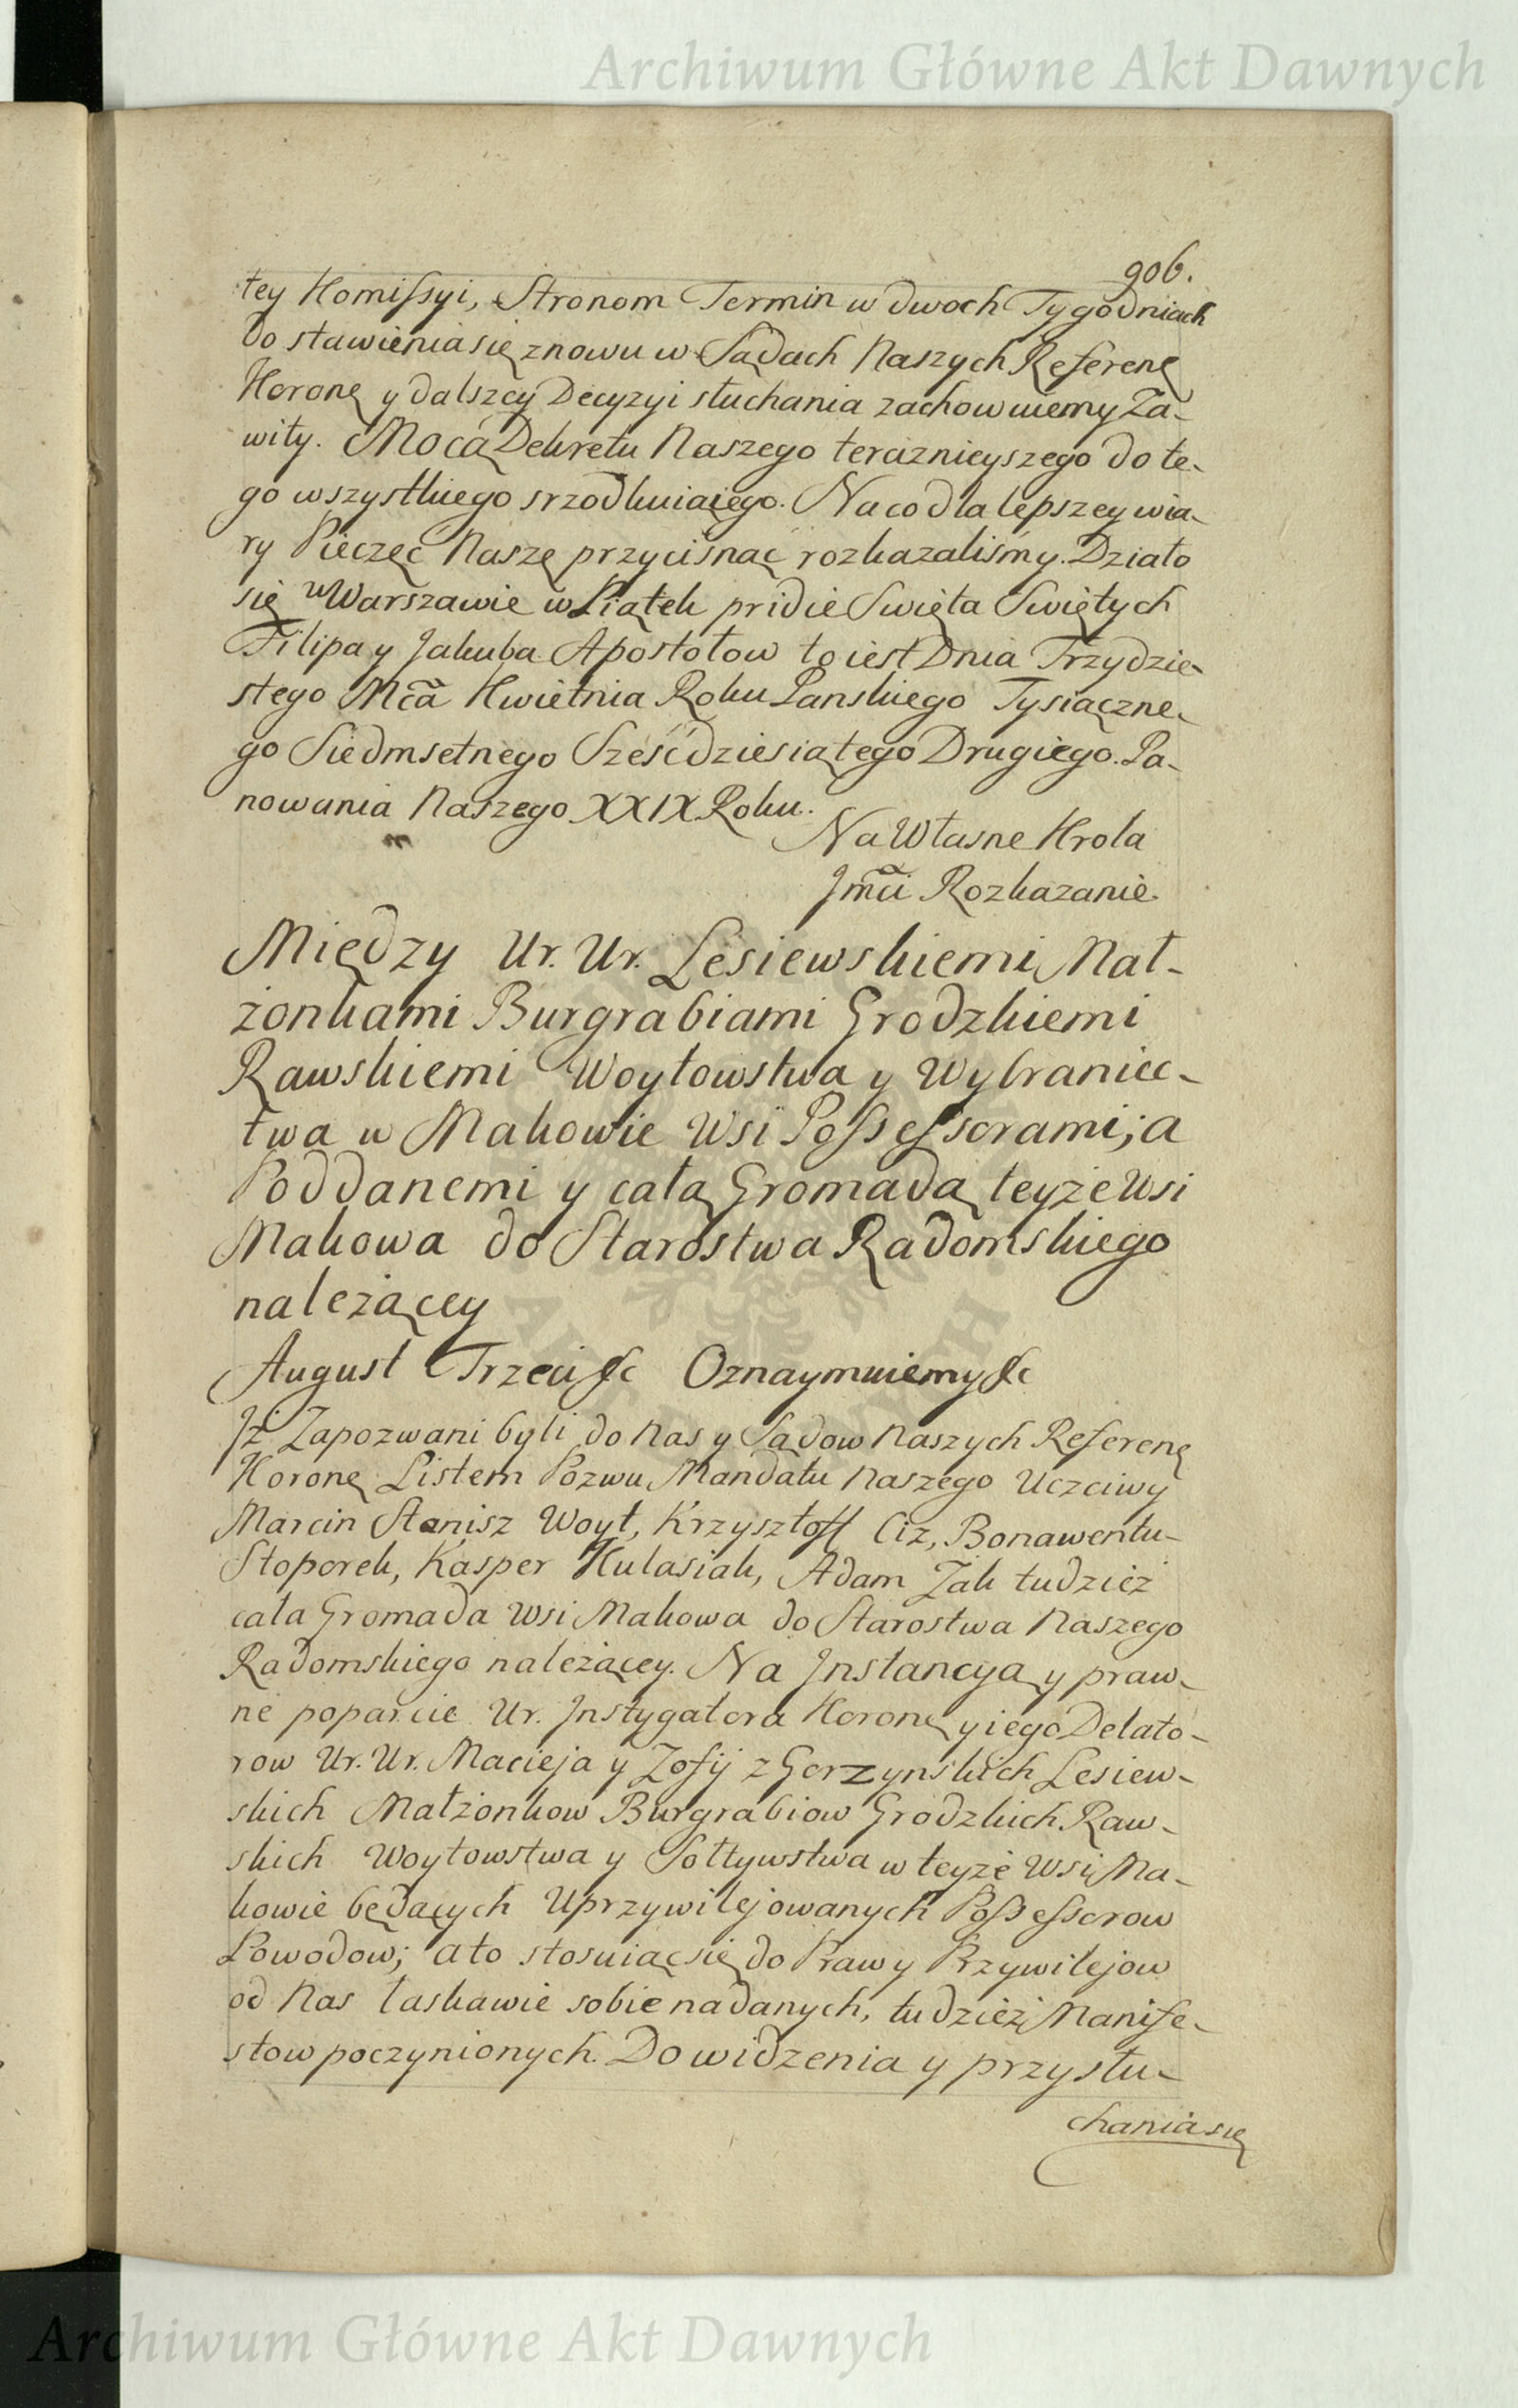 Archiwum Główne Akt Dawnych
906.
tey Komissyi, Stronom Termin w dwoch Tygodniach
do stawienia się znowu w Sądach Naszych Referenę
Koronę y dalszey Decyzyi słuchania zachowuiemy Za-
wity. Mocą Dekretu Naszego teraznieyszego do te-
go wszystkiego srzodkuiącego. Na co dla lepszey wia-
ry Pieczęc Naszę przycisnąc rozkazalismy. Działo
się w Warszawie w Piątek pridie Swięta Swiętych
Filipa y Jakuba Apostołow to iest Dnia Trzydzie-
stego Mca Kwietnia Roku Panskiego Tysiączne-
go Siedmsetnego Szesćdziesiątego Drugiego. Pa-
nowania Naszego XXIX Roku.
Na Własne Krola
Jmci Rozkazanie.
Między Ur. Ur. Lesiewskiemi Mał-
żonkami Burgrabiami Grodzkiemi
Rawskiemi Woytowstwa y Wybraniec-
twa w Makowie Wsi Possessorami; a
Poddanemi y całą Gromadą teyże Wsi
Makowa do Starostwa Radomskiego
należącey
August Trzeci &c Oznaymuiemy &c
Jż Zapozwani byli do Nas y Sądow Naszych Referenę
Koronę Listem Pozwu Mandatu Naszego Uczciwy
Marcin Stanisz Woyt, Krzysztoff Ciz, Bonawentu-
Stoporek, Kasper Kulasiak, Adam Żak tudzież
cała Gromada Wsi Makowa do Starostwa Naszego
Radomskiego należącey. Na Jnstancyą y praw-
ne poparcie Ur. Jnstygatora Koronę y iego Delato-
row Ur. Ur. Macieja y Zofij z Gorzynskich Lesiew-
skich Małżonkow Burgrabiow Grodzkich Raw-
skich Woytowstwa y Sołtywstwa w teyże Wsi Ma-
kowie będących Uprzywilejowanych Possessorow
Powodow; a to stosuiąc się do Praw y Przywilejow
od Nas łaskawie sobie nadanych, tudzież Manife-
stow poczynionych. Do widzenia y przysłu-
chania się
Archiwum Główne Akt Dawnych